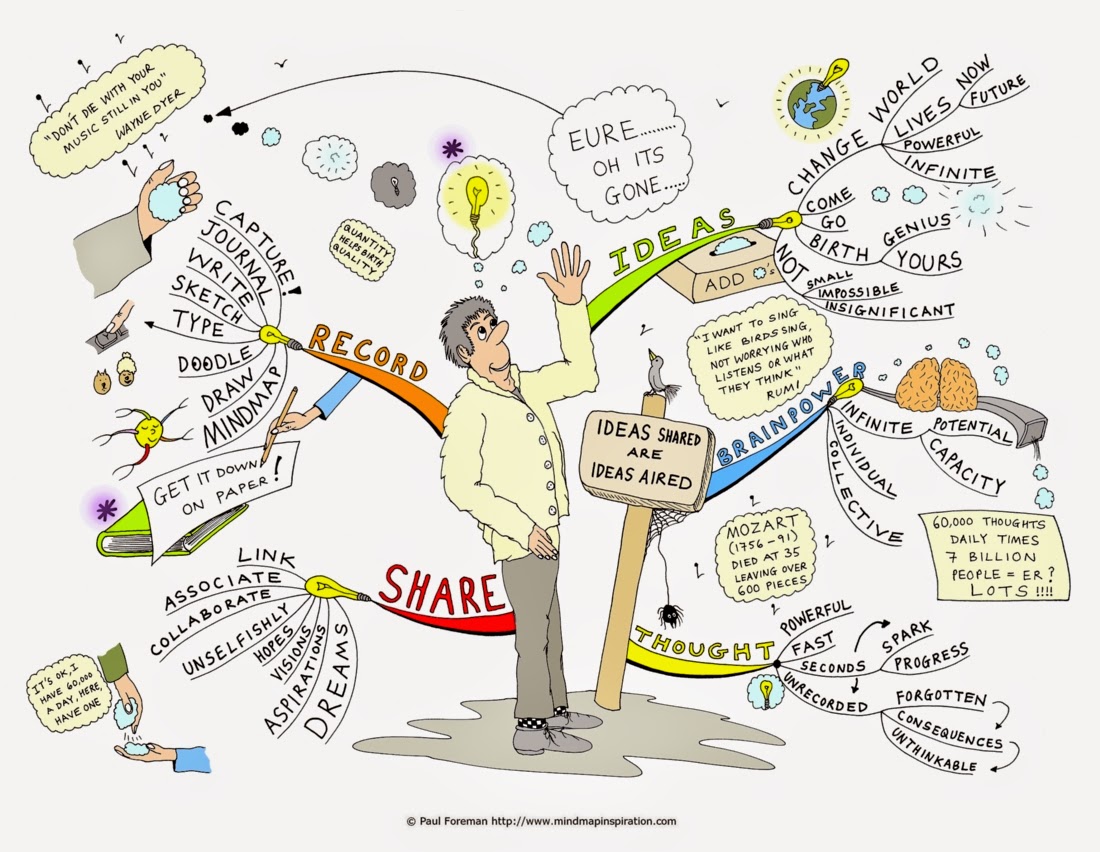 "DON'T DIE WITH YOUR
MUSIC STILL IN YOU"
WAYNE DYER
EURE.........
OH ITS
GONE.....
QUANTITY
HELPS BIRTH
QUALITY
IDEAS
CHANGE WORLD
LIVES
NOW
FUTURE
POWERFUL
INFINITE
COME
GO
BIRTH
GENIUS
YOURS
NOT
SMALL
IMPOSSIBLE
INSIGNIFICANT
ADD 's
RECORD
CAPTURE!
JOURNAL
WRITE
SKETCH
TYPE
DOODLE
DRAW
MINDMAP
GET IT DOWN
ON PAPER!
"I WANT TO SING
LIKE BIRDS SING,
NOT WORRYING WHO
LISTENS OR WHAT
THEY THINK"
RUMI
IDEAS SHARED
ARE
IDEAS AIRED
BRAINPOWER
INFINITE
POTENTIAL
CAPACITY
INDIVIDUAL
COLLECTIVE
60,000 THOUGHTS
DAILY TIMES
7 BILLION
PEOPLE = ER?
LOTS !!!!
MOZART
(1756-91)
DIED AT 35
LEAVING OVER
600 PIECES
SHARE
LINK
ASSOCIATE
COLLABORATE
UNSELFISHLY
HOPES
VISIONS
ASPIRATIONS
DREAMS
IT'S OK, I
HAVE 60,000
A DAY, HERE
HAVE ONE
THOUGHT
POWERFUL
FAST
SECONDS
SPARK
PROGRESS
UNRECORDED
FORGOTTEN
CONSEQUENCES
UNTHINKABLE
© Paul Foreman http://www.mindmapinspiration.com